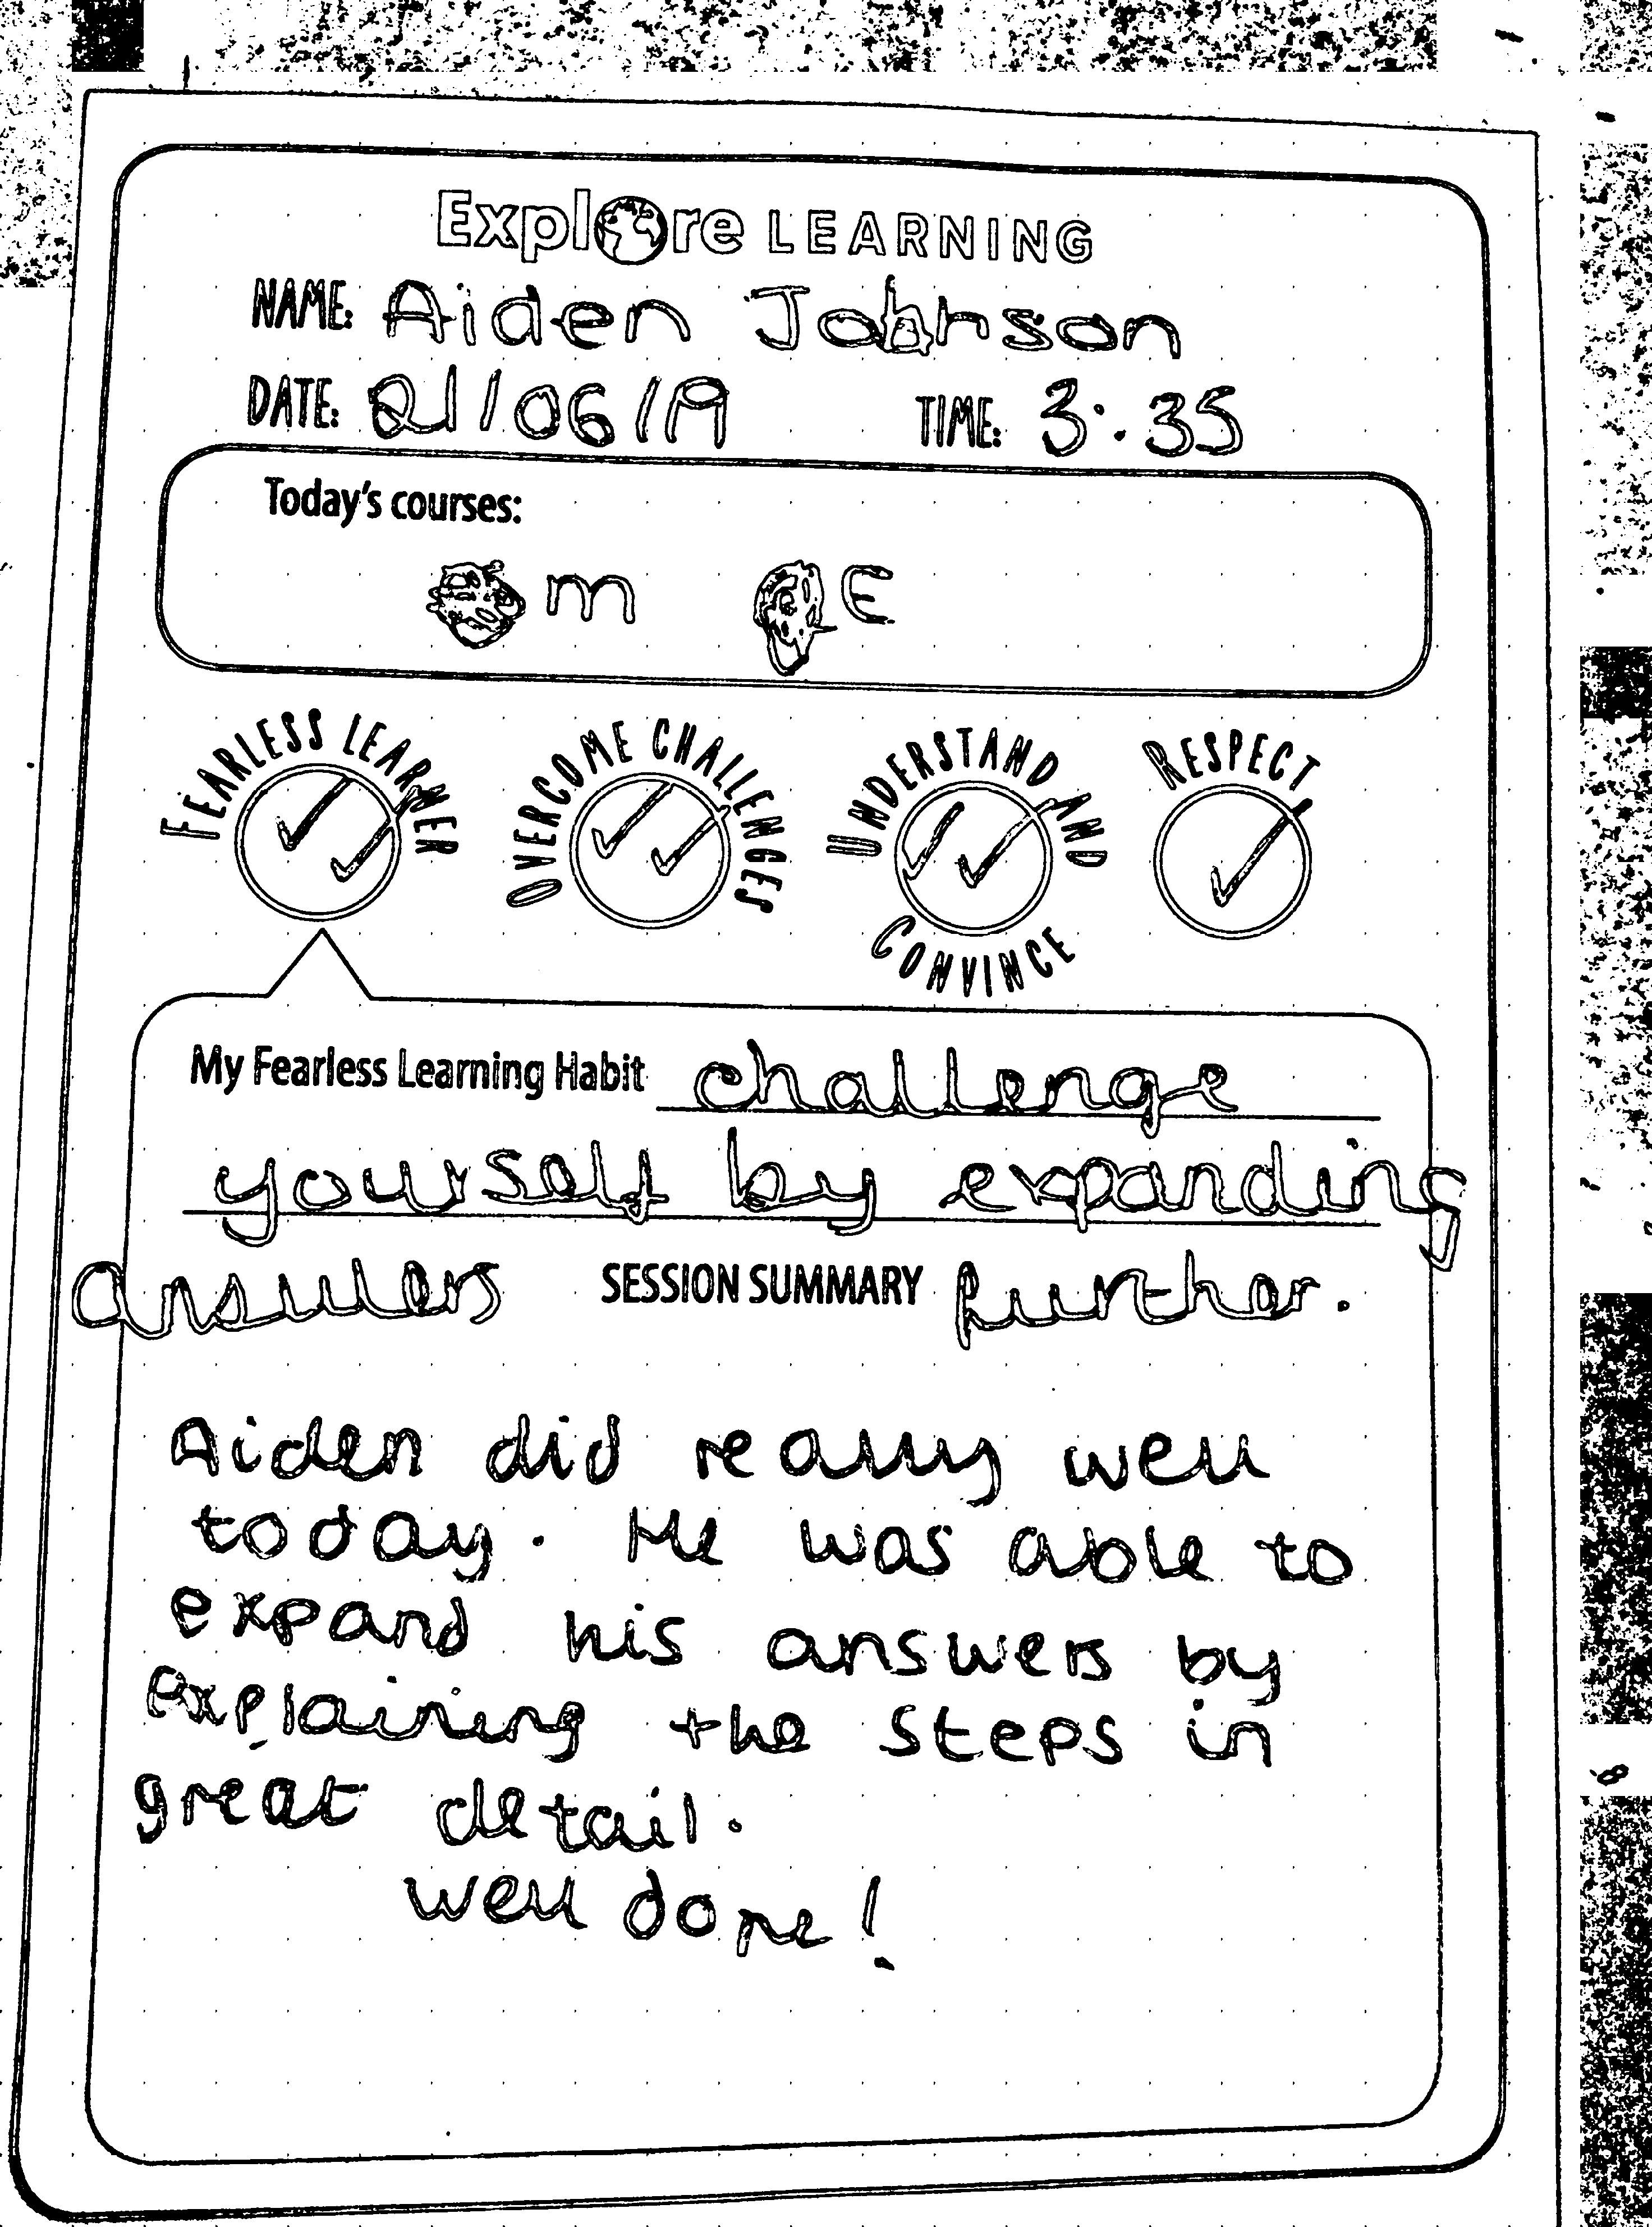 Explore LEARNING
NAME: Aiden Johnson
DATE: 21/06/19 TIME: 3:35
Today's courses:
m E
FEARLESS LEARNER OVERCOME CHALLENGES UNDERSTAND AND CONVINCE RESPECT
My Fearless Learning Habit challenge
yourself by expanding
answers SESSION SUMMARY further.
Aiden did really well
today. He was able to
expand his answers by
explaining the steps in
great detail.
well done!